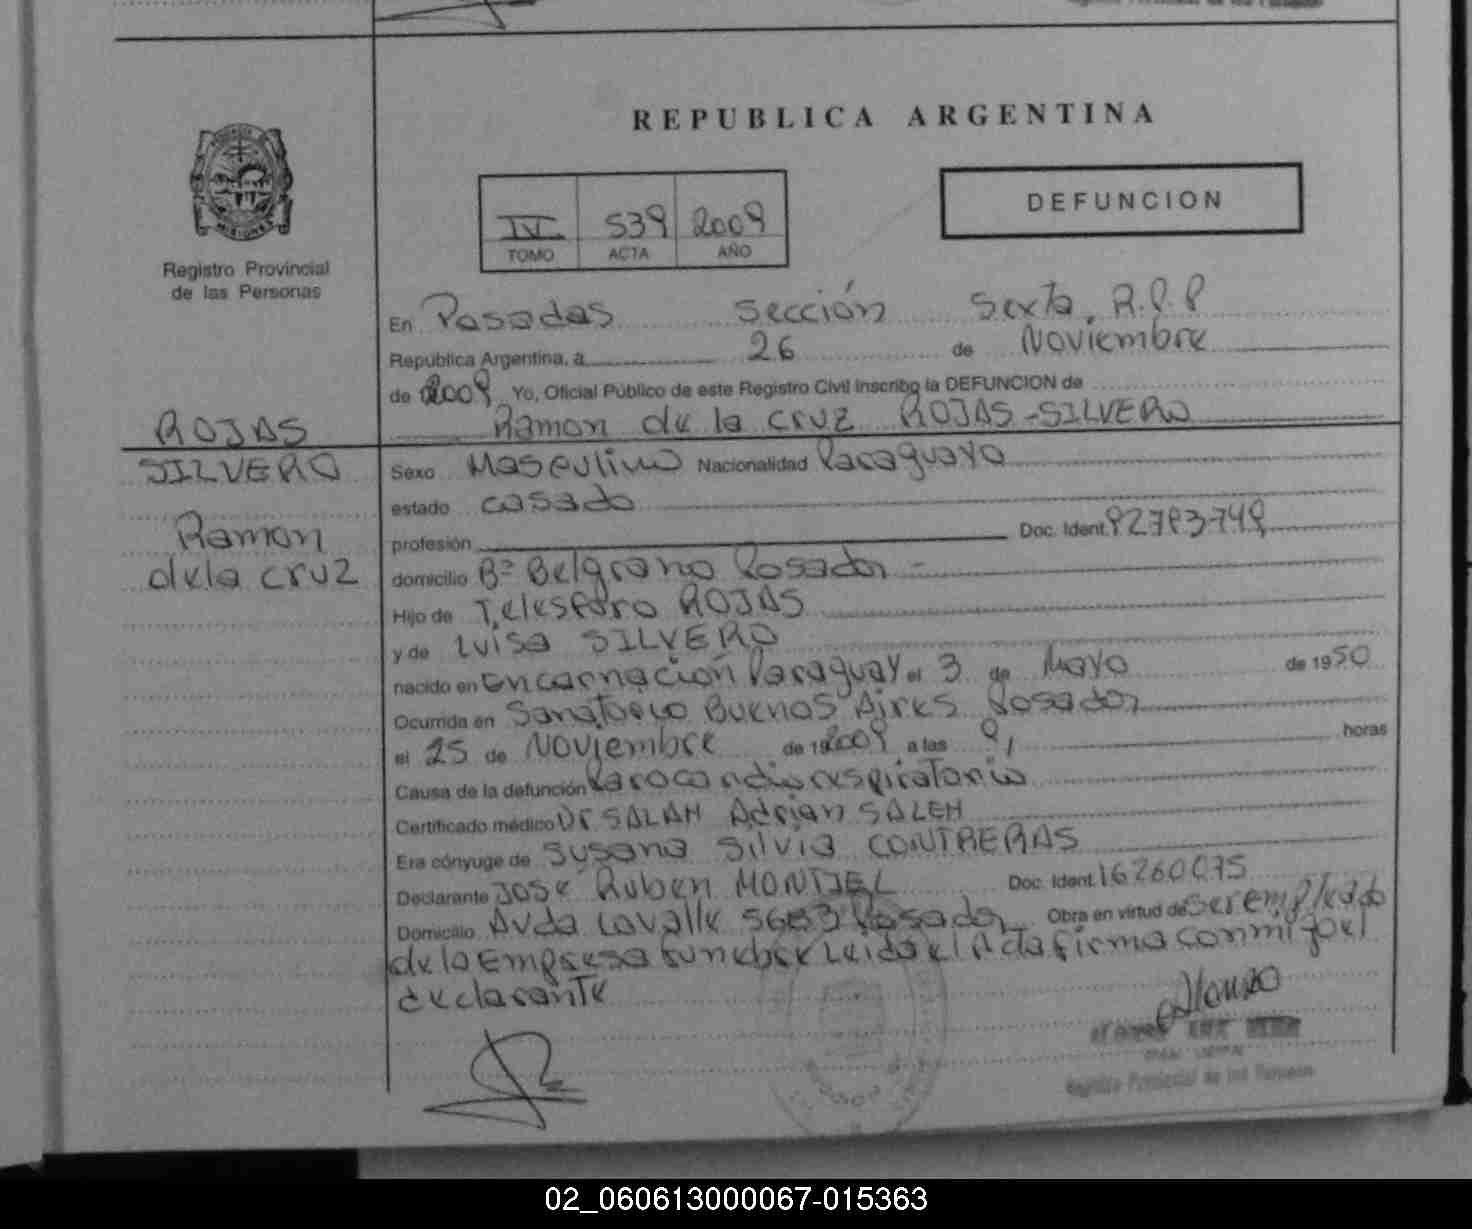 REPUBLICA ARGENTINA
DEFUNCION
IV 539 2009
TOMO ACTA AÑO
Registro Provincial
de las Personas
En Posadas Sección Sexta, R.P.P
República Argentina, a 26 de Noviembre
de 2009 Yo, Oficial Público de este Registro Civil inscribo la DEFUNCION de
Ramon de la cruz ROJAS-SILVERO
ROJAS
SILVERO
Ramon
de la cruz
Sexo Masculino Nacionalidad Paraguaya
estado casado
profesión Doc. Ident. 92783749
domicilio Bº Belgrano Posadas -
Hijo de Telesforo ROJAS
y de Luisa SILVERO
nacido en Encarnación Paraguay el 3 de Mayo de 1950
Ocurrida en Sanatorio Buenos Aires Posadas
el 25 de Noviembre de 19 2009 a las 9, horas
Causa de la defunción Parocardiorespiratorio
Certificado médico Dr SALAH Adrian SALEH
Era cónyuge de Susana Silvia CONTRERAS
Declarante José Ruben MONTIEL Doc. Ident. 16260075
Domicilio Avda Lavalle 5683 Posadas Obra en virtud de ser empleado
de la Empresa funebre Leida el Acta firma conmigo el
declarante
Alonzo
Registro Provincial de las Personas
02_060613000067-015363